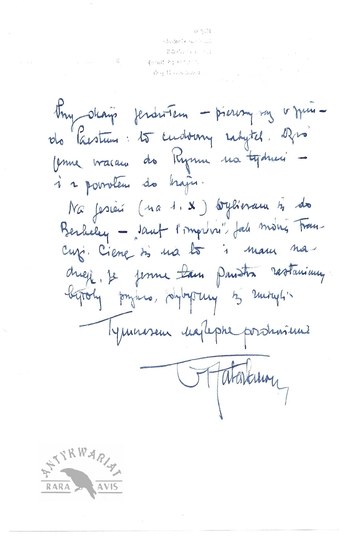 Przy okazji jeździłem – pierwszy raz w życiu –
do Paestum: to cudowny zabytek. Dziś
jeszcze wracam do Rzymu na tydzień –
i z powrotem do kraju.
Na jesień (na 1. X) wybieram się do
Berkeley – "sauf l'imprévu", jak mówią Fran-
cuzi. Cieszę się na to i mam na-
dzieję, że jeszcze tam Państwa zastaniemy
byłoby
Tymczasem najlepsze pozdrowienia
WTatarkiewicz
ANTYKWARIAT
RARA AVIS